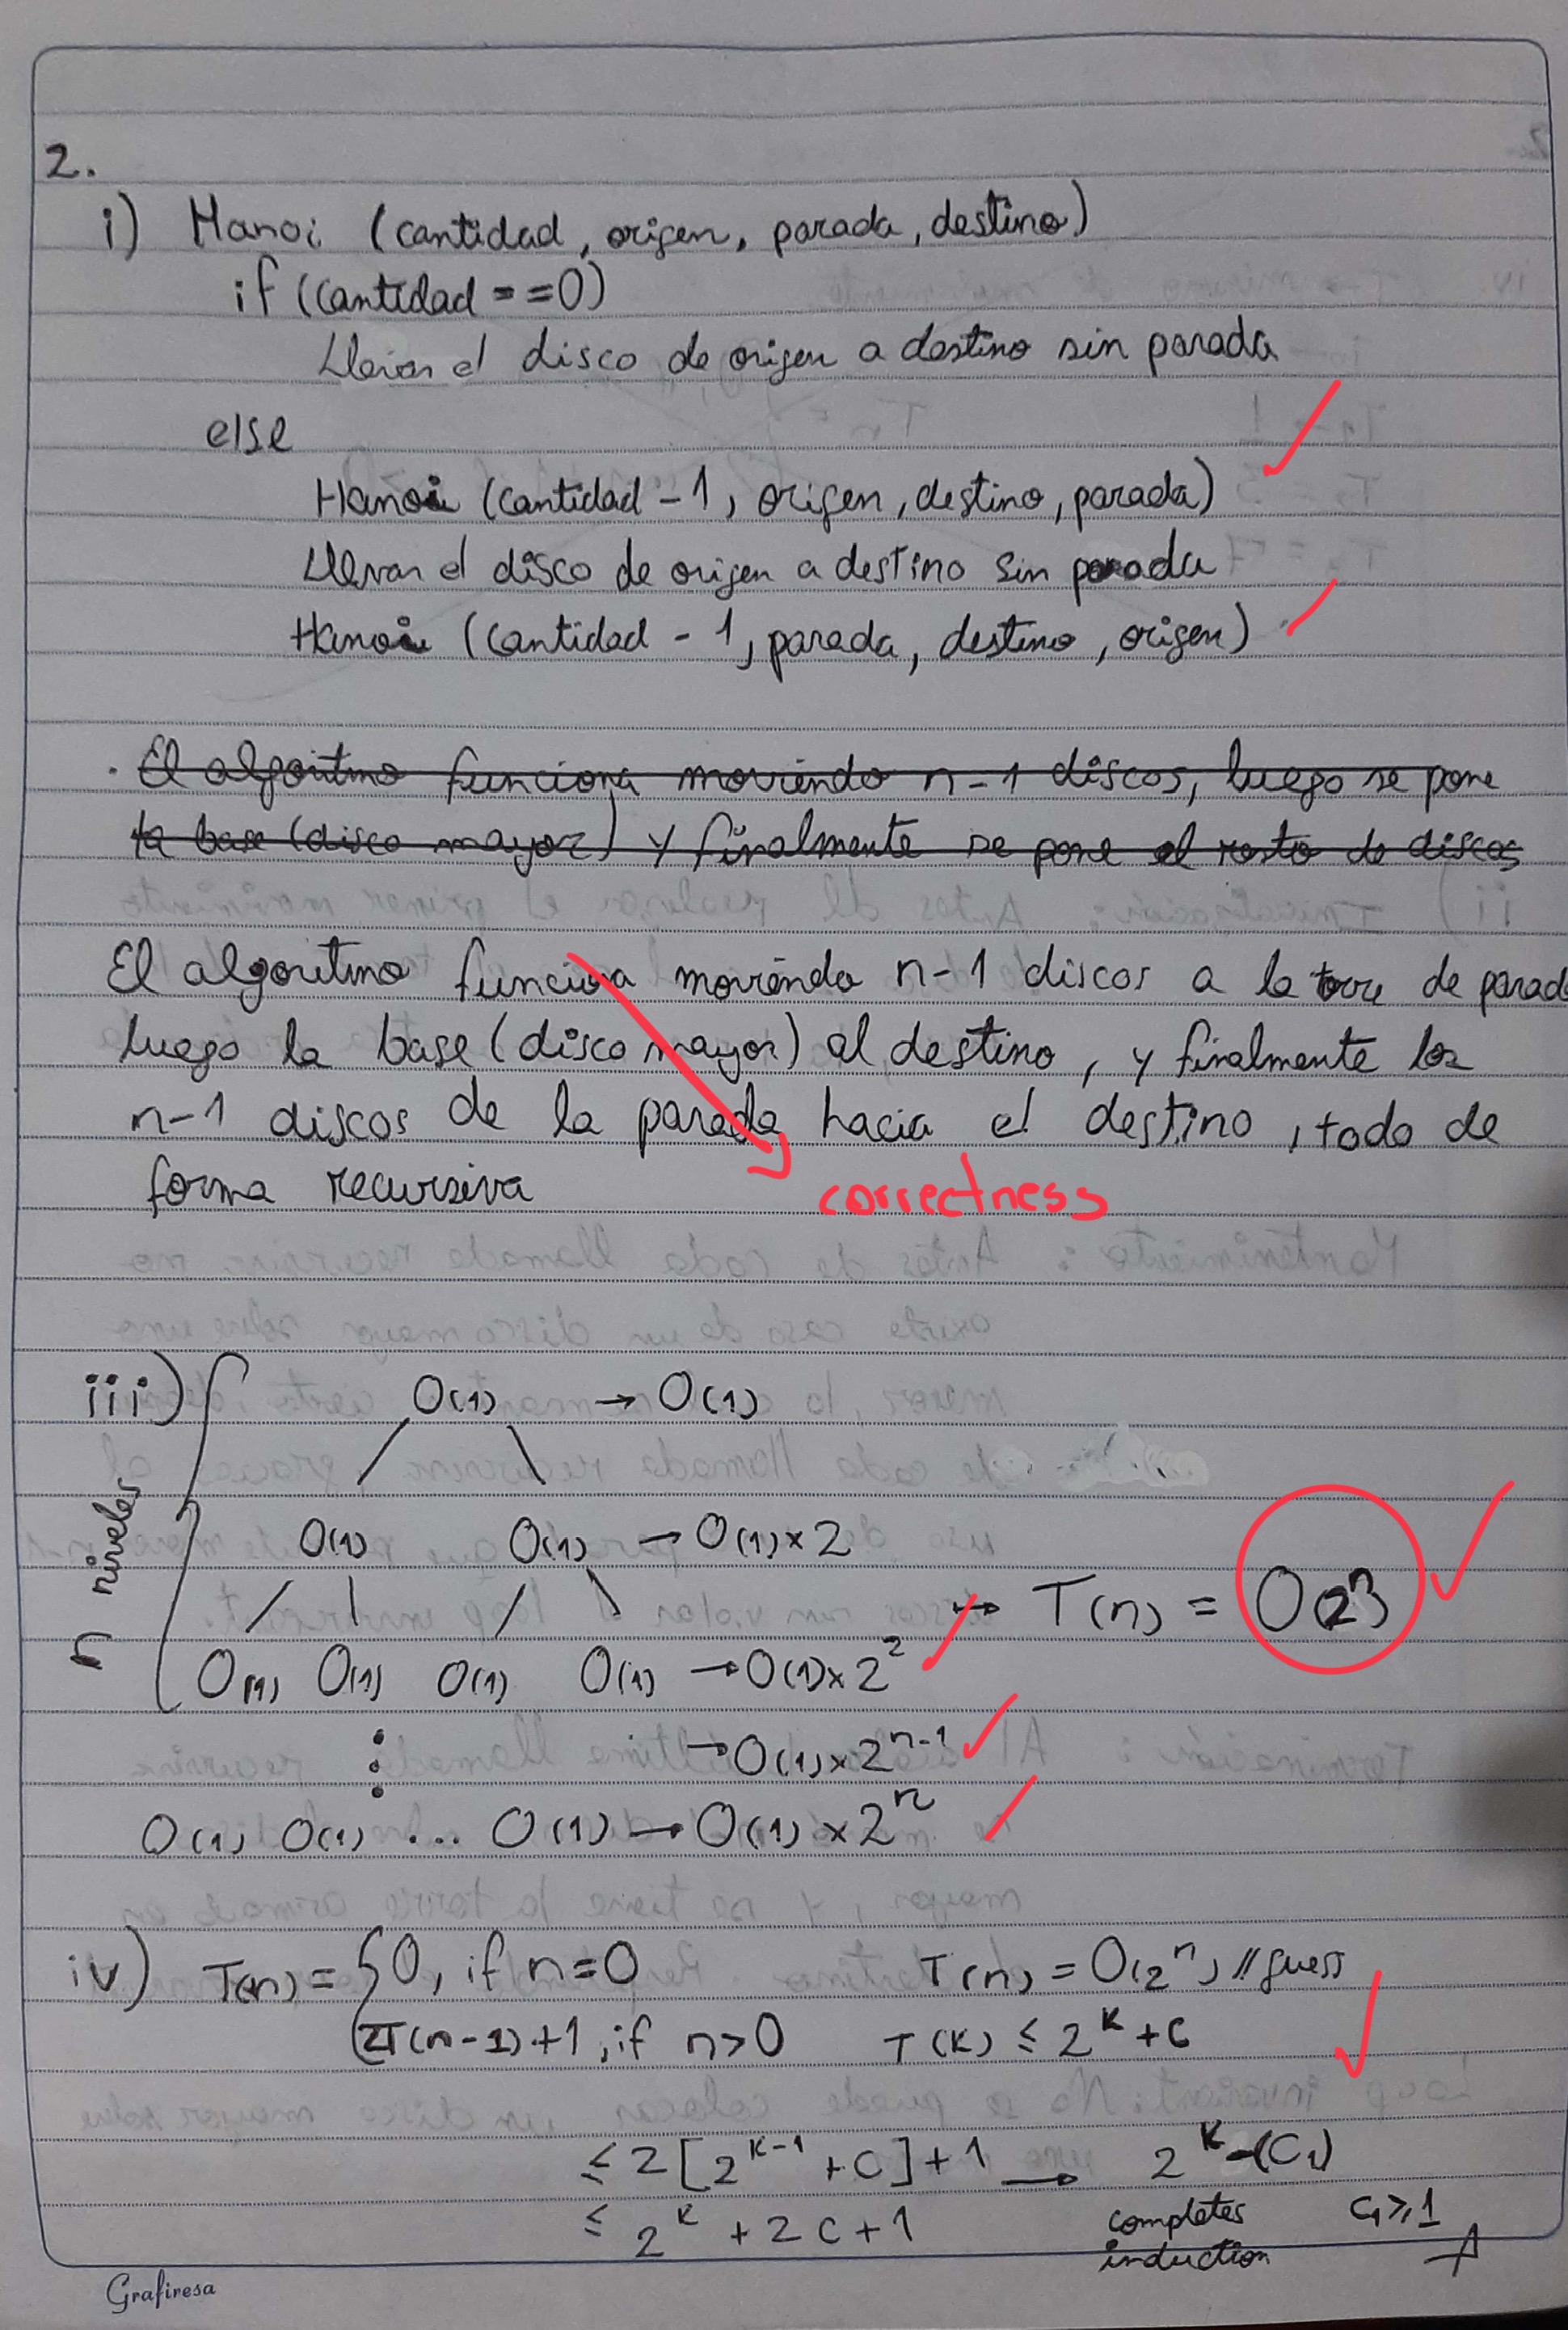 2.
i) Hanoi (cantidad, origen, parada, destino)
if (cantidad == 0)
Llevar el disco de origen a destino sin parada
else
Hanoi (cantidad - 1, origen, destino, parada)
Llevar el disco de origen a destino sin parada
Hanoi (cantidad - 1, parada, destino, origen)
. El algoritmo funciona moviendo n-1 discos, luego se pone
la base (disco mayor) y finalmente se pone el resto de discos
El algoritmo funciona moviendo n-1 discos a la torre de parad
luego la base (disco mayor) al destino, y finalmente los
n-1 discos de la parada hacia el destino, todo de
forma recursiva
correctness
iii) O(1) → O(1)
n niveles
O(1) O(1) → O(1) x 2
→ T(n) = O(2^n)
O(1) O(1) O(1) O(1) → O(1) x 2^2
⋮ → O(1) x 2^{n-1}
O(1) O(1) ... O(1) → O(1) x 2^n
iv) T(n) = { 0, if n=0 T(n) = O(2^n) // guess
2T(n-1)+1, if n>0 T(K) ≤ 2^K + C
≤ 2[2^{K-1} + C] + 1 → 2^K - (C_1)
≤ 2^K + 2C + 1 completes induction C_1 ≥ 1
Grafiresa